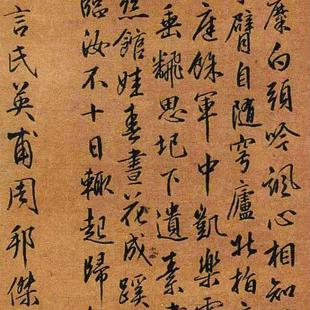 糜白頭吟諷心相知
臂自隨穹廬北指
庭餘軍中凱樂
垂翻思圯下遺素
館娃春晝花成蹊
臨汝不十日輙起歸
言氏英甫周邦傑